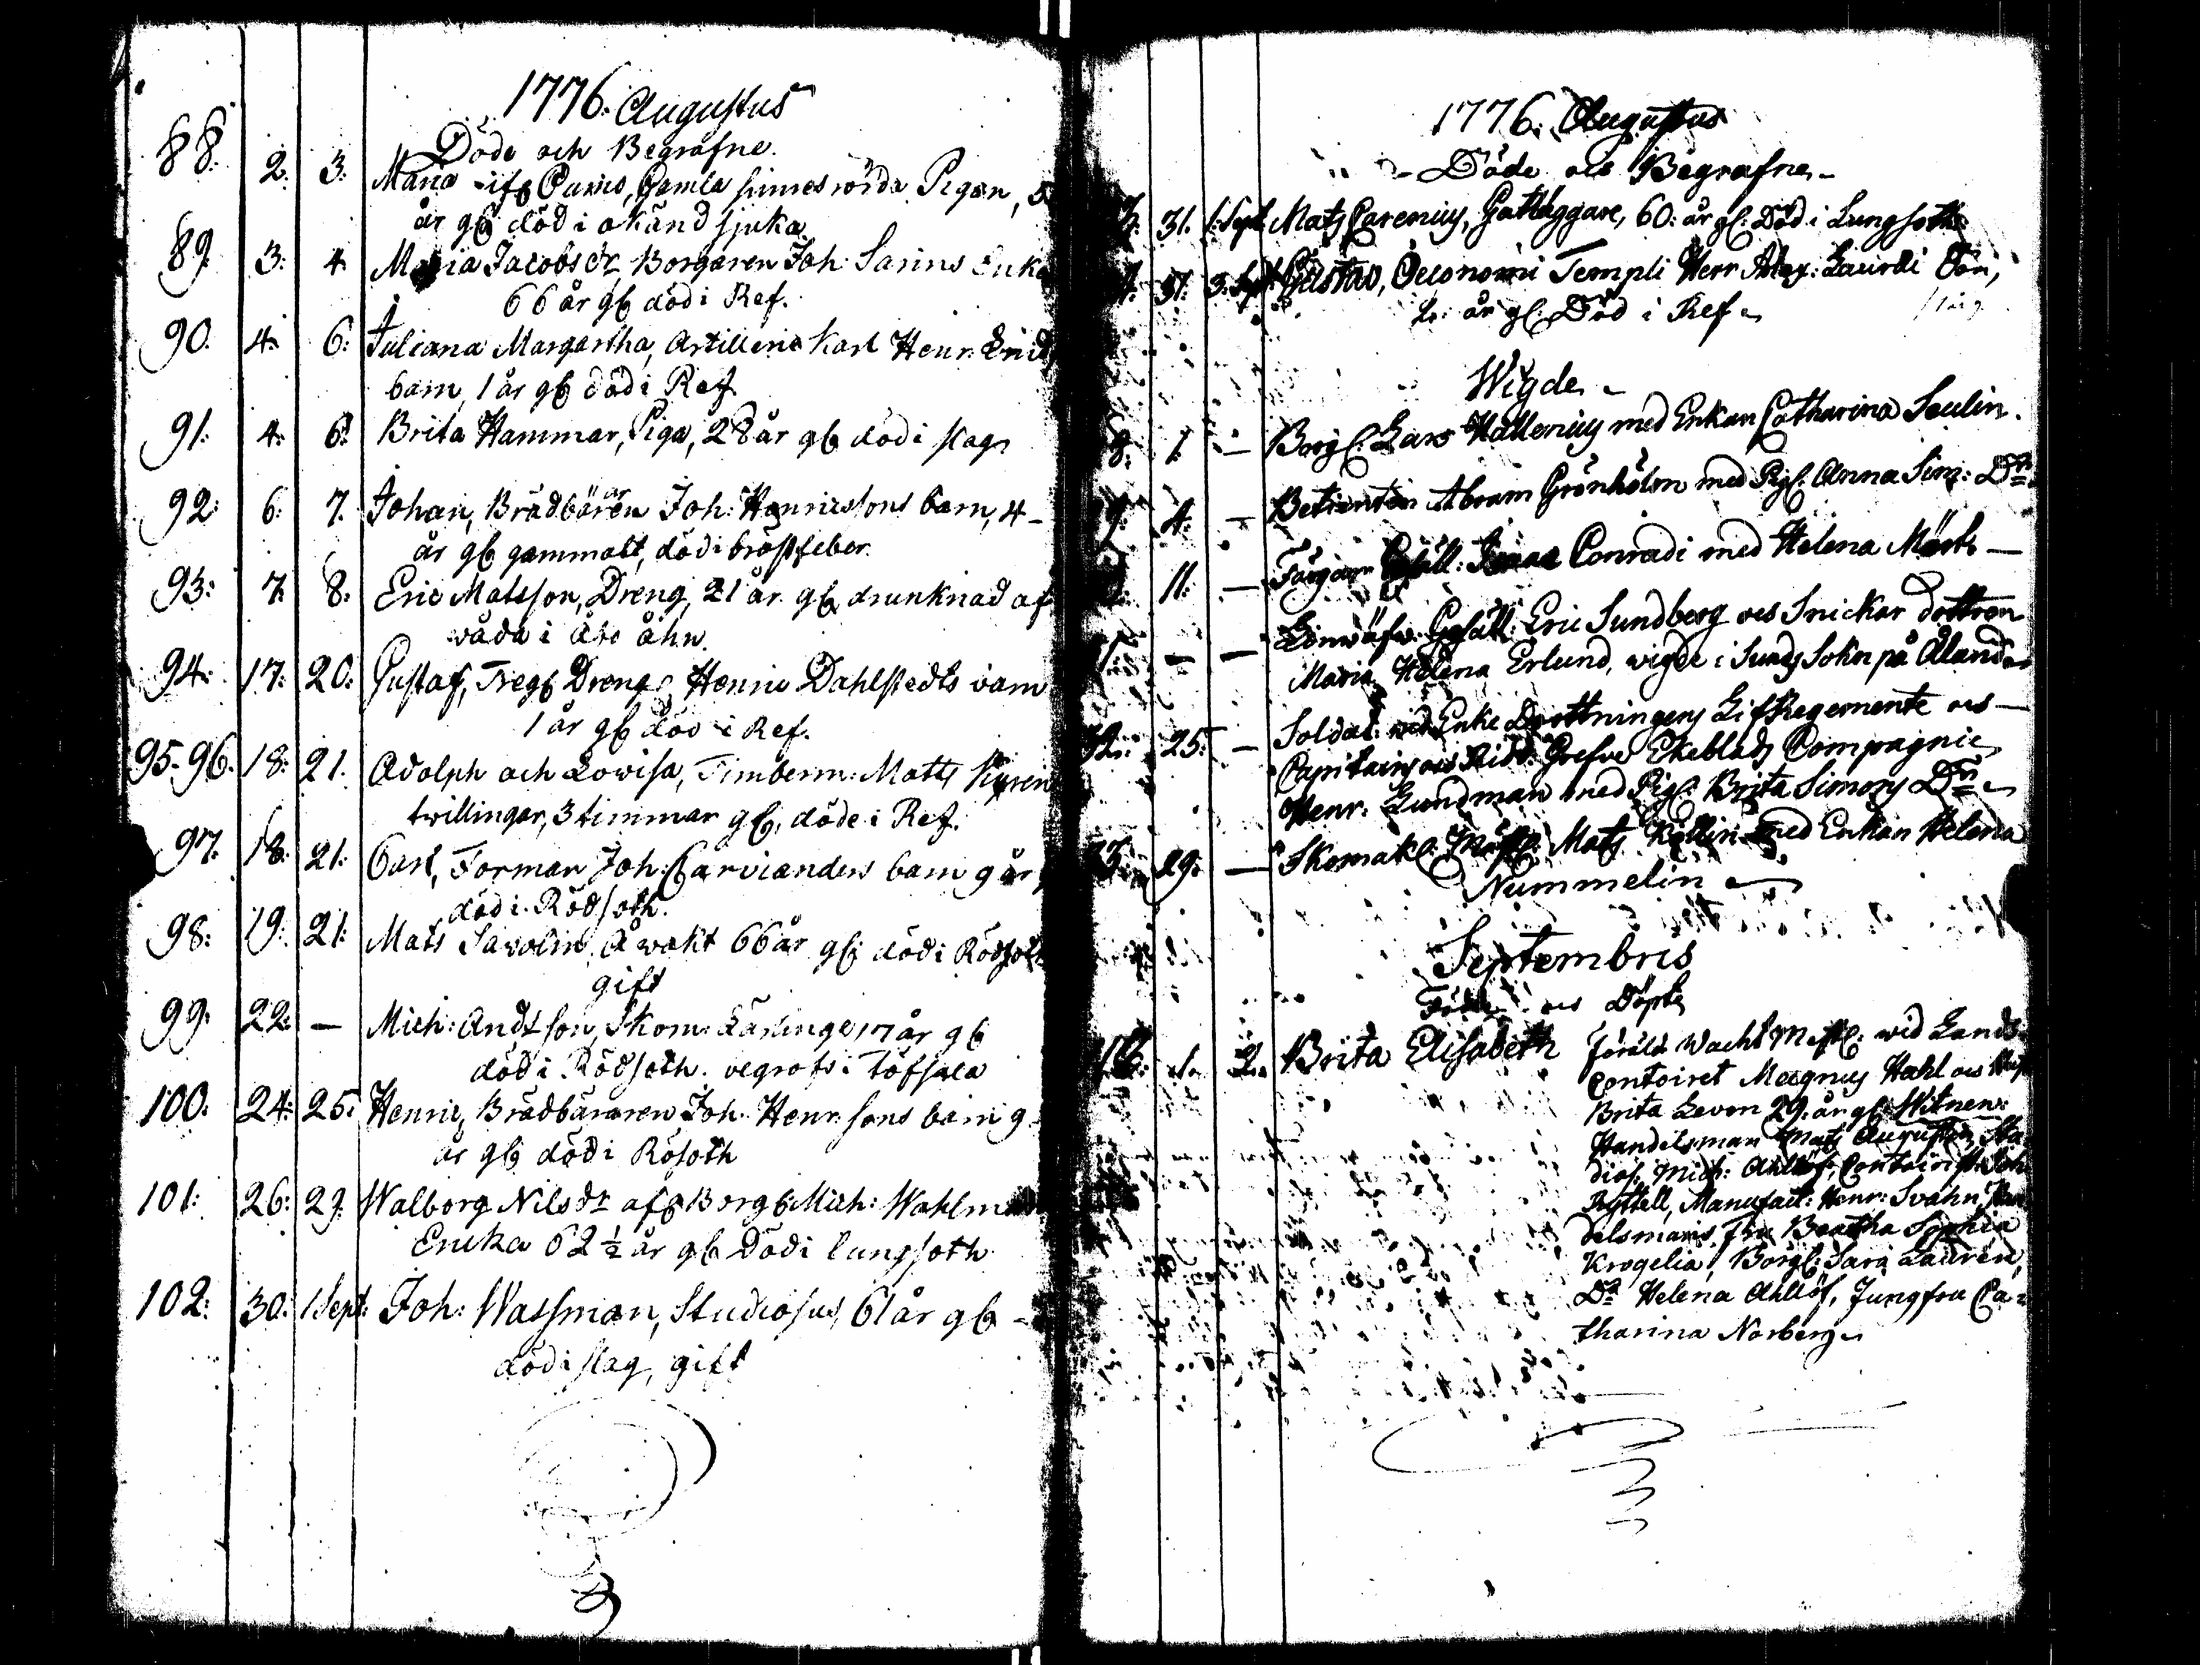 1776. Augustus
Döde och Begrafne.
88. 2. 3. Maria Gamla sinnesrörda Pigan,
år gl död i okänd sjuka
89 3. 4 Maria Jacobsdr Borgaren Joh. Sarins Enka
66 år gl död i Ref.
90. 4. 6. Juliana Margartha, Artillerie Karl Henr.
barn, 1 år gl död i Ref
91. 4. 6. Brita Hammar, Piga, 28 år gl död i slag
92. 6. 7. Johan, Brädbären Joh: Henricssons barn, 4
år gl gammalt, död i bröstfeber.
93. 7. 8. Eric Matsson, Dreng, 21 år gl drunknad af
våda i Åbo åhn.
94. 17. 20. Gustaf, Dreng Henric Dahlstedts barn
1 år gl död i Ref.
95-96. 18. 21. Adolph och Lovisa, Timberm: Matts
twillingar, 3 timmar gl, döde i Ref.
97. 18. 21. Carl, Forman Joh: barn 9 år
död i Rödsoth.
98. 19. 21. Mats Savolin, Åwakt 66 år gl: död i Rödsoth
gift
99. 22. — Mich: Andsson, Skom: Lärlinge, 17 år gl
död i Rödsoth. begrafs i Töfsala
100. 24. 25. Henric, Brädbäraren Joh. Henr.sons barn 9
år gl död i Rösoth
101. 26. 29. Walborg Nilsdr afl Borgl: Mich: Wahlm
Encka 62 ½ år gl Död i lungsoth
102. 30. 1 Sept. Joh: Wassman, Studiosus, 61 år gl
död i slag, gift
1776. Augustus
Döde och Begrafne
31. 1. Sept Mats Carenius, Gatläggare, 60. år gl. Död i Lungsoth
31. 3. Sept Gustav, Oeconomi Templi Herr Alex: Laurdi Son,
2. år gl. Död i Ref
Wigde
8. 1. — Borgl. Lars Hallenius med Enkan Catharina Seulin.
9. 4. — Betienten Abram Grönholm med Pigl. Anna Sim: Dr
11. — Färgare Gesäll: Isaac Conradi med Helena Märts
— — Gesäll: Eric Sundberg och Snickar dottren
Maria Helena Erlund, wigde i Sunds Sokn på Åland
32. 25. — Soldat: wid Enke Drottningens Lif Regemente och
Capitains och Ridd: Grefve Ekeblads Compagnie
Henr. Lundman med Pigl. Brita Simons Dr
33. 29. — Skomakl: Mäst: Mats Kellin med Enkan Helena
Nummelin
Septembris
Födde och Döpte
1. 2. Brita Elisabeth Föräld: WachtMäst: wid Lands
Contoiret Magnus Hahl och Hust
Brita Leven 29. år gl. Witnen:
Handelsman Mats Augustin, Stu
dios: Mich: Ahllöf, Contoirist Joh
Ryttell, Manufact: Henr: Svahn, Han
delsmans Fru Beatha Sophia
Krogelia, Borgl: Sara Lauren,
Dr Helena Ahllöf, Jungfru Ca
tharina Norberg